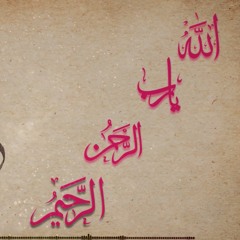 اللّٰه
يارب
الرَّحمن
الرَّحيمُ